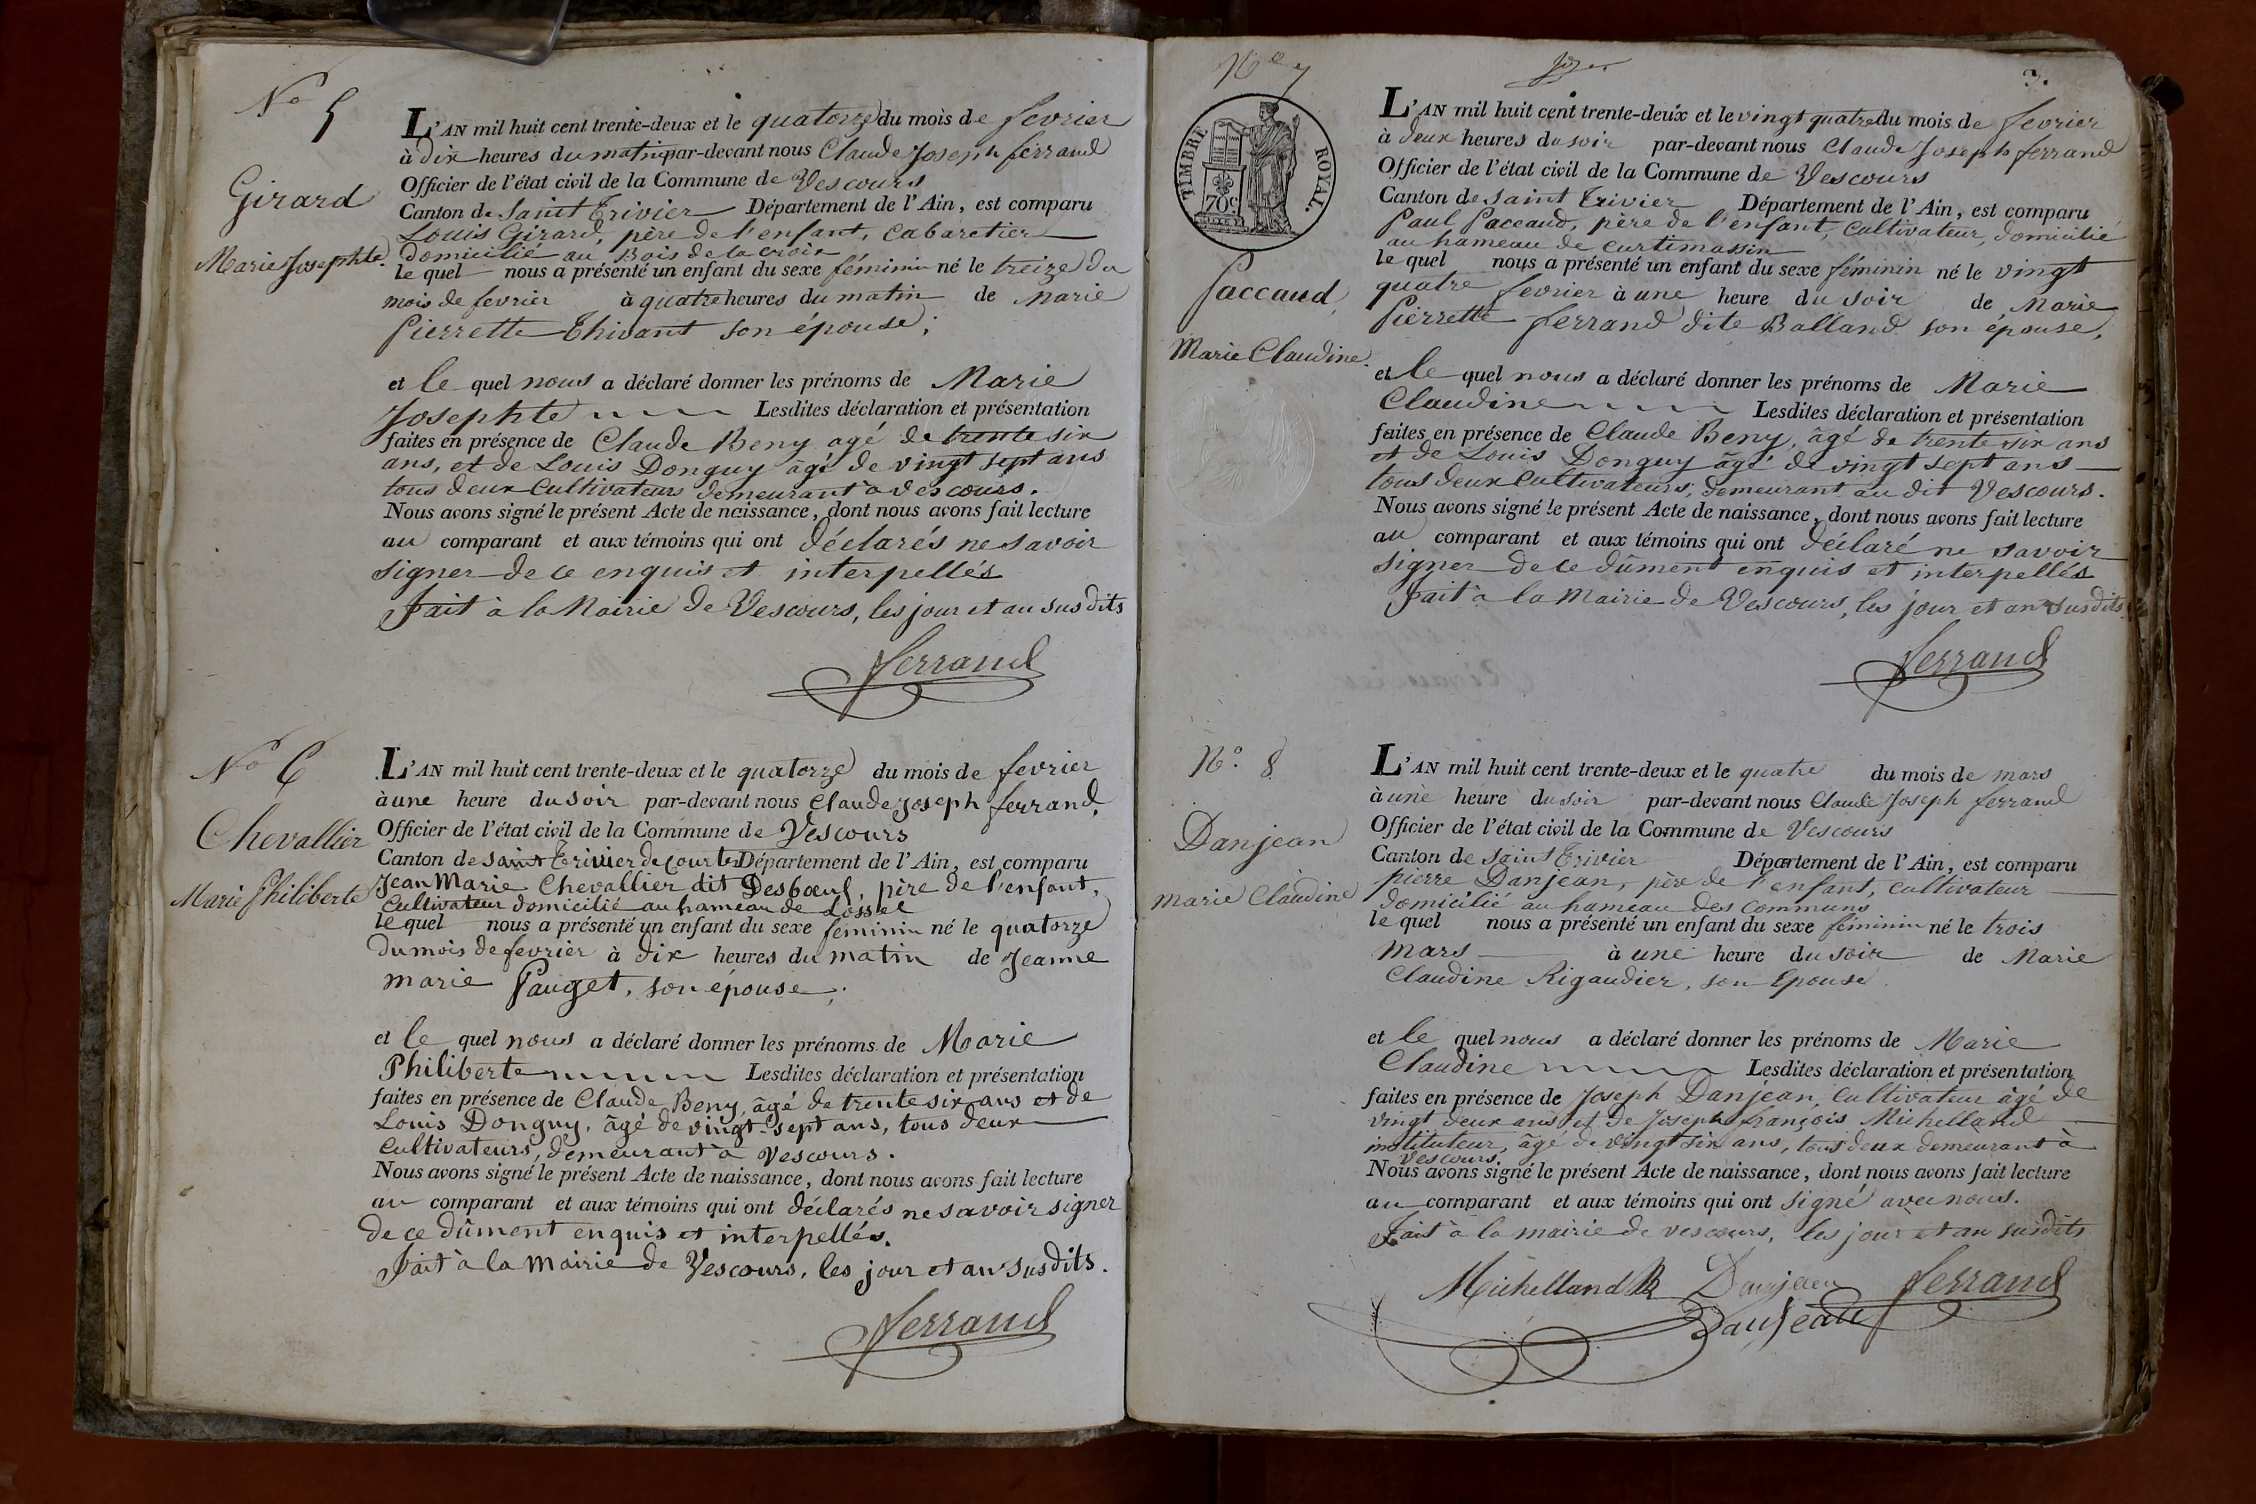 No 5
Girard
Marie Josephte.
L'AN mil huit cent trente-deux et le quatorze du mois de fevrier
à dix heures du matin par-devant nous Claude Joseph ferrand
Officier de l'état civil de la Commune de Vescours
Canton de Saint Trivier Département de l'Ain, est comparu
Louis Girard, père de l'enfant, cabaretier
domicilié au Bois de la croix
le quel nous a présenté un enfant du sexe féminin né le treize du
mois de fevrier à quatre heures du matin de Marie
Pierrette Thivant son épouse;
et le quel nous a déclaré donner les prénoms de Marie
Josephte Lesdites déclaration et présentation
faites en présence de Claude Beny agé de trente six
ans, et de Louis Donguy âgé de vingt sept ans
tous deux Cultivateurs demeurant à Vescours.
Nous avons signé le présent Acte de naissance, dont nous avons fait lecture
au comparant et aux témoins qui ont déclarés ne savoir
signer de ce enquis et interpellés
Fait à la Mairie de Vescours, les jour et an sus dits
ferrand
No 6
Chevallier
Marie Philiberte
L'AN mil huit cent trente-deux et le quatorze du mois de fevrier
à une heure du soir par-devant nous Claude Joseph ferrand,
Officier de l'état civil de la Commune de Vescours
Canton de Saint Trivier de Courtes Département de l'Ain, est comparu
Jean Marie Chevallier dit Desbœuf, père de l'enfant,
Cultivateur domicilié au hameau de Lossel
le quel nous a présenté un enfant du sexe féminin né le quatorze
du mois de fevrier à dix heures du matin de Jeanne
marie Pauget, son épouse;
et le quel nous a déclaré donner les prénoms de Marie
Philiberte Lesdites déclaration et présentation
faites en présence de Claude Beny, âgé de trente six ans et de
Louis Donguy, âgé de vingt-sept ans, tous deux
Cultivateurs, demeurant à Vescours.
Nous avons signé le présent Acte de naissance, dont nous avons fait lecture
au comparant et aux témoins qui ont déclarés ne savoir signer
de ce dûment enquis et interpellés.
Fait à la Mairie de Vescours, les jour et an susdits.
ferrand
3.
No 7
TIMBRE ROYAL.
70c
Paccaud,
Marie Claudine.
L'AN mil huit cent trente-deux et le vingt quatre du mois de fevrier
à deux heures du soir par-devant nous Claude Joseph ferrand
Officier de l'état civil de la Commune de Vescours
Canton de Saint Trivier Département de l'Ain, est comparu
Paul Paccaud, père de l'enfant, Cultivateur, domicilié
au hameau de curtimassin
le quel nous a présenté un enfant du sexe féminin né le vingt
quatre fevrier à une heure du soir de Marie
Pierrette ferrand dite Balland son épouse,
et le quel nous a déclaré donner les prénoms de Marie
Claudine Lesdites déclaration et présentation
faites en présence de Claude Beny, âgé de trente six ans
et de Louis Donguy âgé de vingt sept ans
tous deux Cultivateurs, demeurant au dit Vescours.
Nous avons signé le présent Acte de naissance, dont nous avons fait lecture
au comparant et aux témoins qui ont déclaré ne savoir
signer de ce dûment enquis et interpellés
Fait à la Mairie de Vescours, les jour et an susdits
ferrand
No. 8
Danjean
marie Claudine
L'AN mil huit cent trente-deux et le quatre du mois de mars
à une heure du soir par-devant nous Claude Joseph ferrand
Officier de l'état civil de la Commune de Vescours
Canton de Saint Trivier Département de l'Ain, est comparu
pierre Danjean, père de l'enfant, cultivateur
domicilié au hameau des Communs
le quel nous a présenté un enfant du sexe féminin né le trois
mars à une heure du soir de Marie
Claudine Rigaudier, son Epouse
et le quel nous a déclaré donner les prénoms de Marie
Claudine Lesdites déclaration et présentation
faites en présence de Joseph Danjean, Cultivateur âgé de
vingt deux ans et de Joseph françois Michelland
instituteur, âgé de vingt six ans, tous deux demeurant à
Vescours.
Nous avons signé le présent Acte de naissance, dont nous avons fait lecture
au comparant et aux témoins qui ont signé avec nous.
Fait à la mairie de vescours, les jour et an susdits
Michelland Danjean ferrand
Danjean